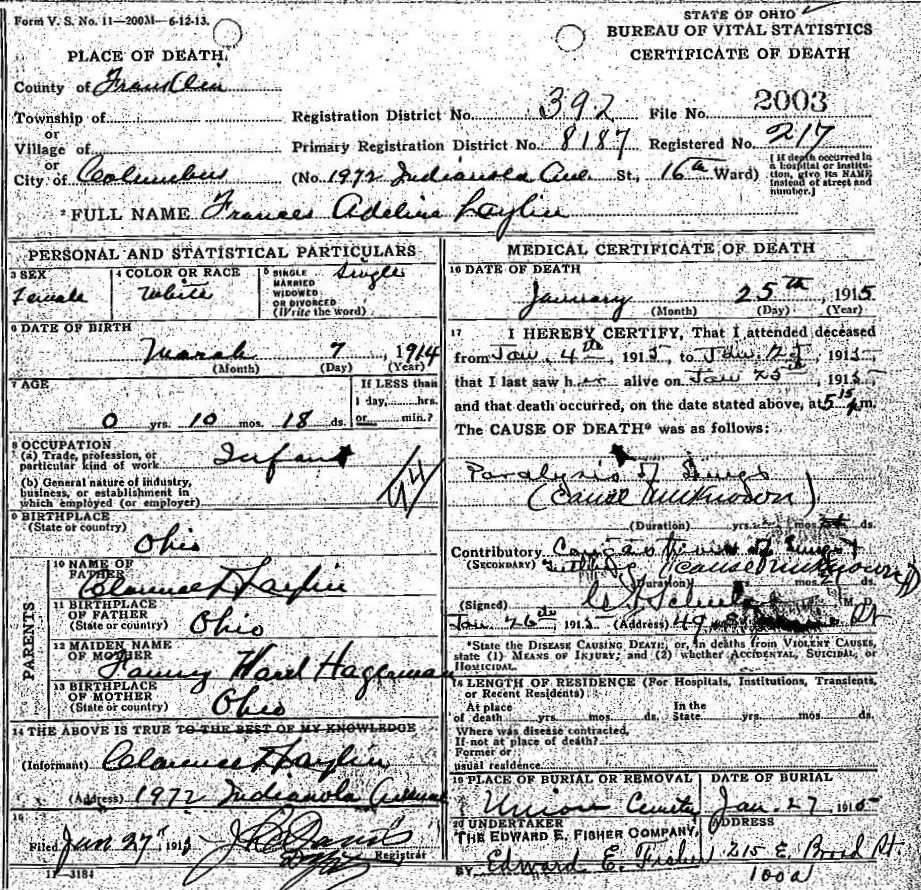 Form V. S. No. 11—200M—6-12-13.
STATE OF OHIO
BUREAU OF VITAL STATISTICS
CERTIFICATE OF DEATH
PLACE OF DEATH
County of Franklin
Township of
or
Village of
or
City of Columbus
Registration District No. 392
File No. 2003
Primary Registration District No. 8187
Registered No. 217
(No. 1972 Indianola Ave. St., 16th Ward)
[If death occurred in
a hospital or institu-
tion, give its NAME
instead of street and
number.]
2 FULL NAME Frances Adeline Laylin
PERSONAL AND STATISTICAL PARTICULARS
3 SEX
Female
4 COLOR OR RACE
White
5 SINGLE
MARRIED
WIDOWED
OR DIVORCED
(Write the word)
Single
6 DATE OF BIRTH
March 7, 1914
(Month) (Day) (Year)
7 AGE
0 yrs. 10 mos. 18 ds.
If LESS than
1 day, hrs.
or min.?
8 OCCUPATION
(a) Trade, profession, or
particular kind of work
Infant
(b) General nature of industry,
business, or establishment in
which employed (or employer)
94
9 BIRTHPLACE
(State or country)
Ohio
PARENTS
10 NAME OF
FATHER
Clarence D Laylin
11 BIRTHPLACE
OF FATHER
(State or country)
Ohio
12 MAIDEN NAME
OF MOTHER
Fanny Ward Hagerman
13 BIRTHPLACE
OF MOTHER
(State or country)
Ohio
14 THE ABOVE IS TRUE TO THE BEST OF MY KNOWLEDGE
(Informant) Clarence D Laylin
(Address) 1972 Indianola Avenue
15
Filed Jan 27, 1915
Registrar
11—3184
MEDICAL CERTIFICATE OF DEATH
16 DATE OF DEATH
January 25th, 1915
(Month) (Day) (Year)
17 I HEREBY CERTIFY, That I attended deceased
from Jan. 4th, 1915, to Jan. 25, 1915,
that I last saw her alive on Jan 25th, 1915,
and that death occurred, on the date stated above, at 5 15 m.
The CAUSE OF DEATH* was as follows:
Paralysis of Lungs
(Cause unknown)
(Duration) yrs. mos. ds.
Contributory Congestion of Lungs +
(SECONDARY) (cause unknown)
(Duration) yrs. mos. ds.
(Signed) M. D.
Jan 26th 1915 (Address) 49 St
*State the DISEASE CAUSING DEATH; or, in deaths from VIOLENT CAUSES,
state (1) MEANS OF INJURY; and (2) whether ACCIDENTAL, SUICIDAL, or
HOMICIDAL.
18 LENGTH OF RESIDENCE (For Hospitals, Institutions, Transients,
or Recent Residents)
At place
of death yrs. mos. ds.
In the
State yrs. mos. ds.
Where was disease contracted,
If not at place of death?
Former or
usual residence
19 PLACE OF BURIAL OR REMOVAL
Union Cemetery
DATE OF BURIAL
Jan. 27 1915
20 UNDERTAKER
THE EDWARD E. FISHER COMPANY,
BY Edward E. Fisher
ADDRESS
215 E. Broad St.
100a